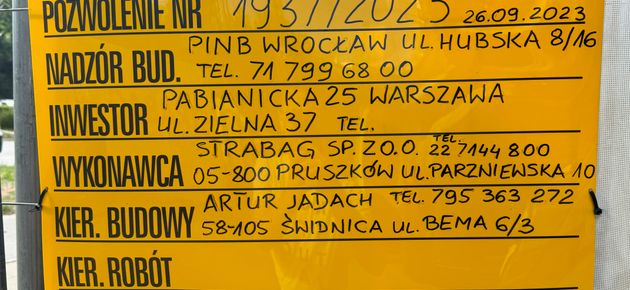 POZWOLENIE NR 1937/2023 26.09.2023
PINB WROCŁAW UL. HUBSKA 8/16
NADZÓR BUD. TEL. 71 799 68 00
PABIANICKA 25 WARSZAWA
INWESTOR UL. ZIELNA 37 TEL.
STRABAG SP. Z O.O. TEL. 22 7144 800
WYKONAWCA 05-800 PRUSZKÓW UL. PARZNIEWSKA 10
ARTUR JADACH TEL. 795 363 272
KIER. BUDOWY 58-105 ŚWIDNICA UL. BEMA 6/3
KIER. ROBÓT